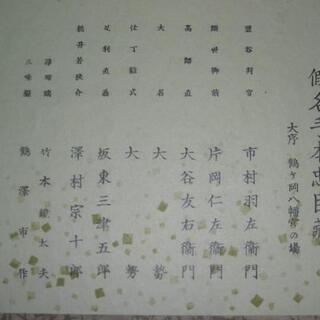 假名手本忠臣藏
大序 鶴ケ岡八幡宮の場
塩谷判官 市村羽左衞門
顔世御前 片岡仁左衞門
高師直 大谷友右衞門
大名 大勢
仕丁 大勢
足利直義 坂東三津五郎
桃井若狹介 澤村宗十郎
淨瑠璃 竹本鏡太夫
三味線 鶴澤市作